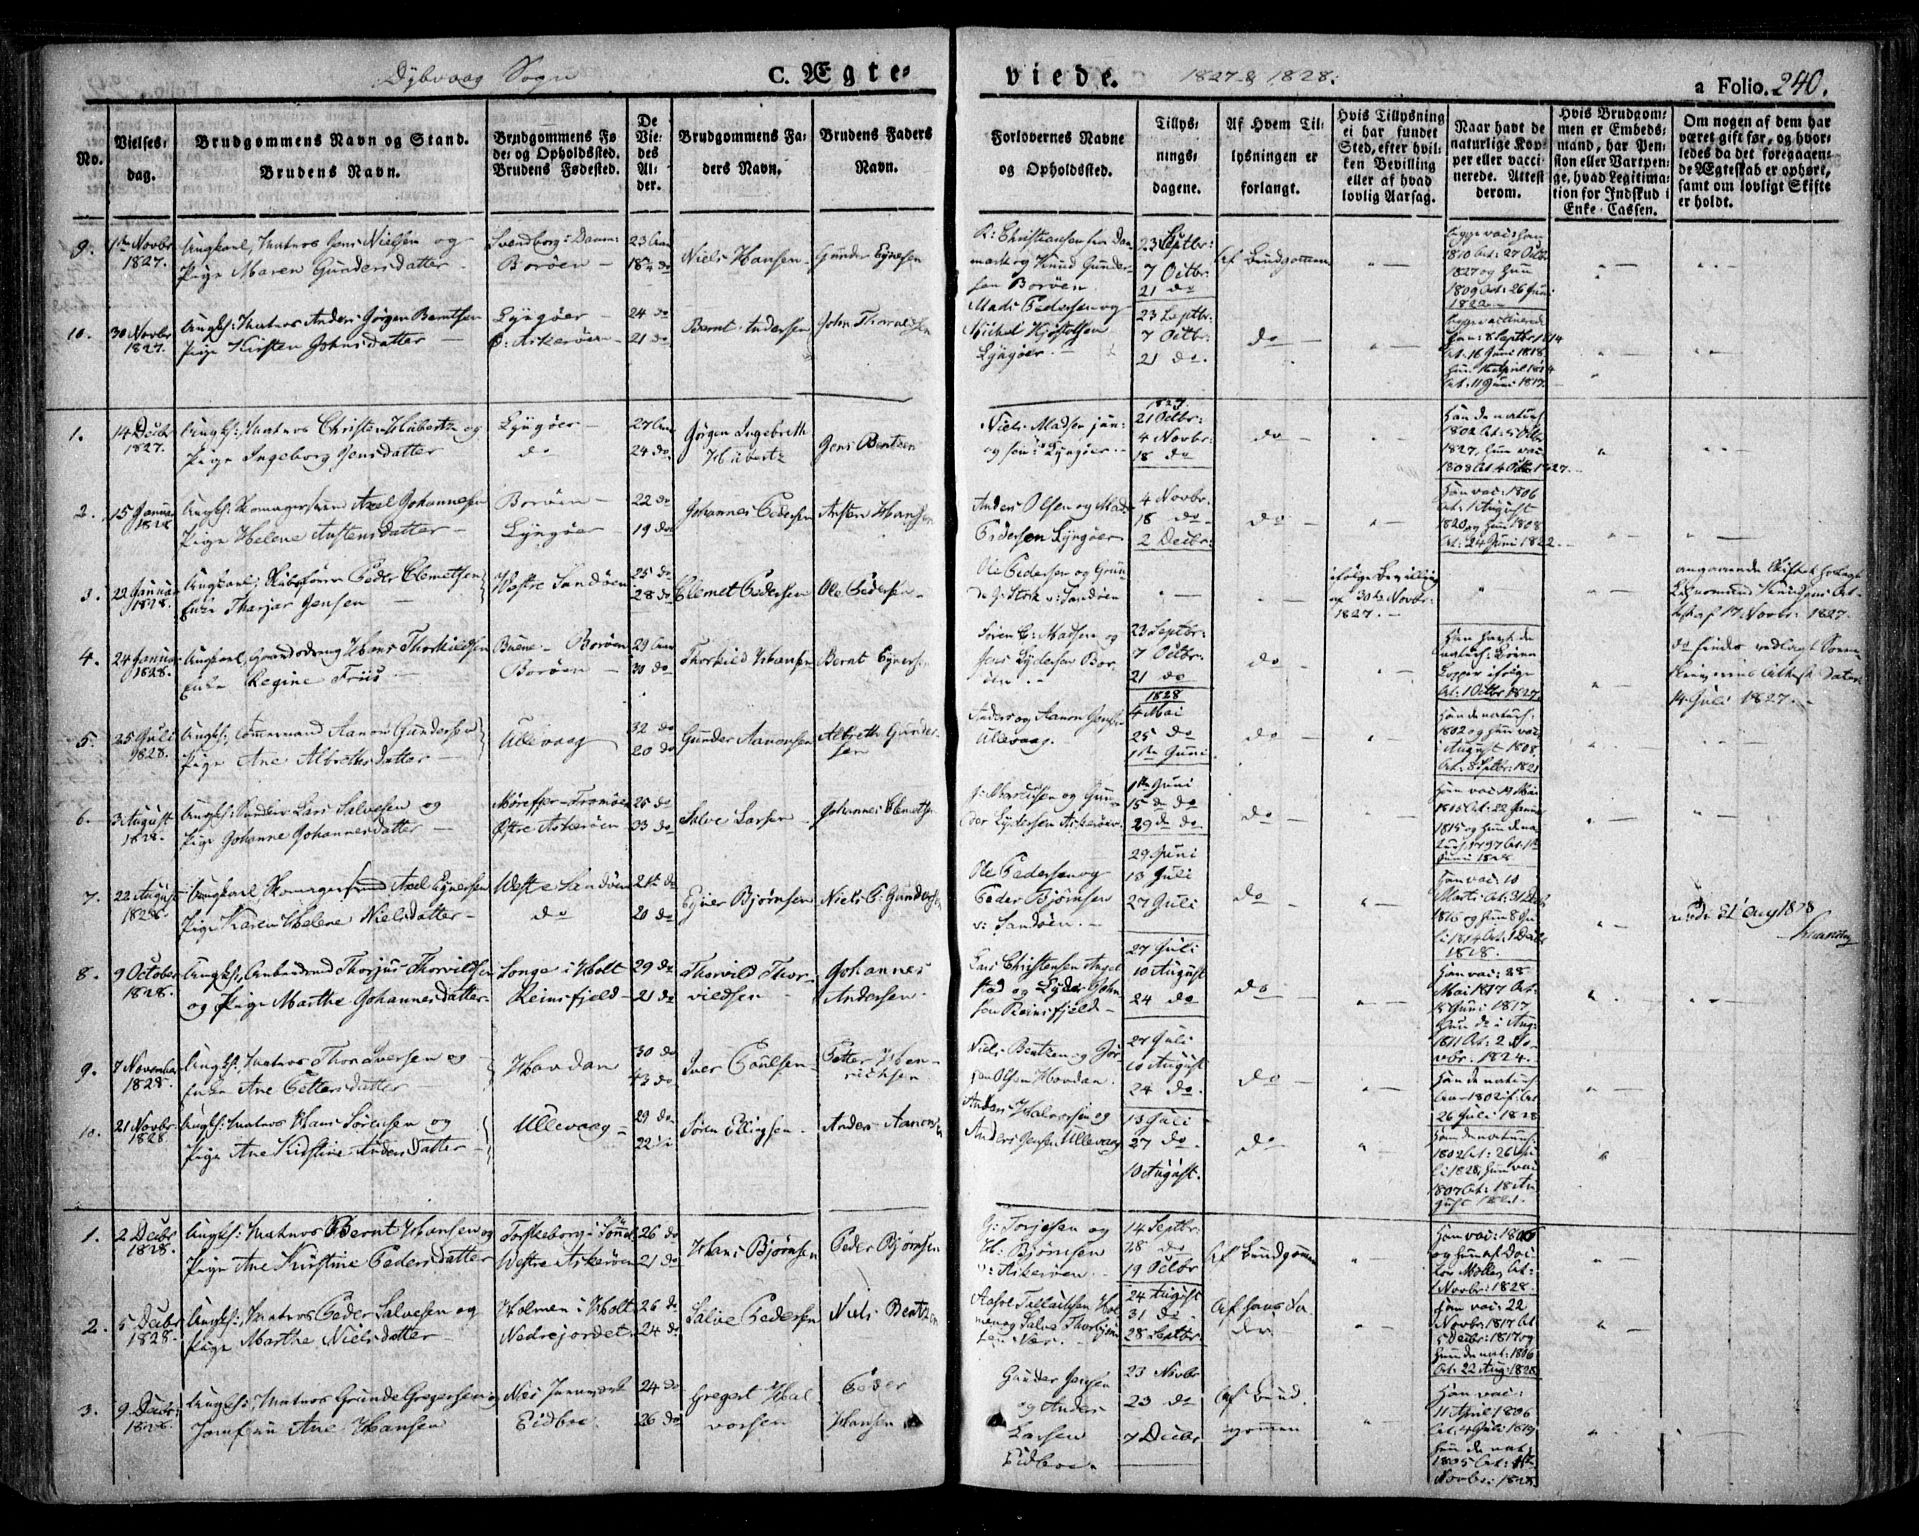 Dybvaag Sogn
C. Ægte-
viede.
1827 & 1828:
a Folio. 240.
No.
Vielses-
dag.
Brudgommens Navn og Stand.
Brudens Navn.
Brudgommens Fø-
de- og Opholdssted.
Brudens Fødested.
De
Vie-
des
Al-
der.
Brudgommens Fa-
ders Navn.
Brudens Faders
Navn.
Forlovernes Navne
og Opholdssted.
Tillys-
nings-
dagene.
Af Hvem Til-
lysningen er
forlangt.
Hvis Tillysning
ei har fundet
Sted, efter hvil-
ken Bevilling
eller af hvad
lovlig Aarsag.
Naar havt de
naturlige Kop-
per eller vacci-
nerede. Attest
derom.
Hvis Brudgom-
men er Embeds-
mand, har Pen-
sion eller Vartpen-
ge, hvad Legitima-
tion for Indskud i
Enke-Cassen.
Om nogen af dem har
været gift før, og hvor-
ledes da det foregaaen-
de Ægteskab er ophørt,
samt om lovligt Skifte
er holdt.
9. 1ste Novbr 1827.
Ungkarl, Matros Jens Nielsen og
Pige Maren Gundersdatter
Svendborg i Danm:
Borøen
23 Aar
18¾ do
Niels Hansen
Gunder Eynesen
K: Christiansen fra Dan-
mark og Knud Gunder-
sen Borøen.
23 Septbr:
7 Octbr.
21 do
Af Brudgommen
Begge vac: han
1810 Att: 27 Octbr
1827 og hun
1809 Att: 26 Juni
1822
10. 30 Novbr 1827.
Ungk: Matros Anders Jørgen Berntsen
Pige Kirsten Johnsdatter
Lyngøer
Ø: Askerøen
24 do
21 do
Bernt Andersen
John
Mads Pedersen og
Michel Kjøstolsen
Lyngøer.
23 Septbr:
7 Octbr
21 do
do
Begge vaccinerede
han: 8 Septbr 1814
Att. 16 Juni 1818.
hun 16 April 1814
Att. 11 Juni 1817.
1. 14 Decbr 1827.
Ungk: Matros Christen Hübertz og
Pige Ingeborg Jensdatter
Lyngøer
do
27 Aar
24 do
Jørgen Ingebreth
Hübertz
Jens Bentsen
Niels Madsen jun:
og sen: Lyngøer
1827.
21 Octbr:
4 Novbr:
18 do
do
Han de naturl:
1802 Att: 5 Octbr
1827, hun vac:
1808 Att 4 Octbr 1827.
2. 15 Januar 1828
Ungk: Skomagersvend Axel Johannesen
Pige Helene Anstensdatter
Borøen
Lyngøer
22 do
19 do
Johannes Pedersen
Ansten Hansen
Anders Olsen og Mads
Pedersen Lyngøer
4 Novbr.
18 do
2 Decbr:
do
Han vac: 1806
Att: 1 August
1820 og hun 1808
Att: 24 Juni 1822.
3. 22 Januar 1828.
Ungkarl, Skibsfører Peder Clemetsen
Enke Tharjer Jensen
Westre Sandøen
25 do
28 do
Clemet Pedersen
Ole Pedersen
Ole Pedersen og Gun-
de J: Stok v: Sandøen
ifølge Bevilling
af 30te Novbr:
1827.
angaaende Skiftet forlagt
Att: af 17 Novbr: 1827.
4. 24 Januar 1828.
Ungkarl, Hans Thorkildsen
Enke Regine Friis
Buene - Borøen
Borøen
29 Aar
30 do
Thorkild Hansen
Bernt Eynersen
Søren C: Madsen og
Jens Lydersen Bor-
øen.
23 Septbr:
7 Octbr.
21 do
do
Han havt de
naturl:
Kopper ifølge
Att: 1 Octbr 1827.
do findes vedlagt
Attest dateret
14 Juli 1827.
5. 25 Juli 1828.
Ungk: Tømmermand Aanon Gundersen
Pige Ane Albrethsdatter
Ullevaag
32 do
20 do
Gunder Aanonsen
Albreth Gunder-
sen
Anders og Aanon Jensen
Ullevaag.
1828
4 Mai
25 do
1ste Juni
do
Han de naturl:
1802 og hun vac:
i August 1808.
Att. 8 Septbr: 1821
6. 3 August 1828.
Ungk: Lars Salvesen og
Pige Johanne Johannesdatter
Tromøe
Østre Askerøen
25 do
33 do
Salve Larsen
Johannes Clemetsen
J: Marcussen og Gun-
der Lydersen Askerøen
1ste Juni
15de do
29de do
do
1815 og hun de na-
turl: 1797 Att. 1ste
Juni 1828
7. 22 August 1828.
Ungkarl, Skomagersvend Axel Eynersen
Pige Karen Helene Nielsdatter
Westre Sandøen
do
21½ do
20 do
Eyner Bjørnsen
Niels P: Gundersen
Ole Pedersen og
Peder Bjørnsen
v: Sandøen.
29 Juni
13 Juli
27 Juli
do
Han vac: 10
Marts Att: 31 Decbr
1816 og hun 8 Ju-
li 1814 Att: 1 Decbr
1828.
8. 9 October 1828.
Ungk: Thorjus Thorvildsen
og Pige Marthe Johannesdatter
Songe i Holt
Reinsfjeld
29 do
21 do
Thorvild Thor-
vildsen
Johannes
Andersen
Lars Christensen Angel-
stad og Lyder John-
sen Reinsfjeld
27 Juli
10 August
24 do
do
Han vac: 28
Mai 1817 Att:
15 Juni 1817
hun do i Aug:
1811 Att: 2 No-
vbr. 1824.
9. 7 November 1828.
Ungk: Matros Thor Iversen og
Enke Ane Pettersdatter
Havdan
30 do
43 do
Iver Poulsen
Petter Hen-
richsen
Niels Bentzen og Jør-
gen Olsen Hovdan.
27 Juli
10 August
24 do
do
Han de naturl:
1802 Att
26 Juli 1828
10. 21 Novbr 1828
Ungk: Matros Hans Sørensen og
Pige Ane Kirstine Andersdatter
Ullevaag
29 do
22 do
Søren Ellingsen
Anders Aanonsen
Anders Halvorsen og
Anders Jensen Ullevaag
13 Juli
27 do
10 August.
do
Han de naturl:
1802 Att: 26 Ju-
li 1828, hun vac:
1807 Att: 18 Au-
gust 1821.
1. 2 Decbr 1828.
Ungk: Matros Bernt Hansen og
Pige Ane Kirstine Pedersdatter
Westre Askerøen
26 do
21 do
Hans Bjørnsen
Peder Bjørnsen
G: Torjesen og
H: Bjørnsen
v: Askerøen
14 Septbr
28 do
19 Octbr
Af Brudgommen
Han vac: 1806
og hun af Doc-
tor Møller Att:
1 Novbr: 1828.
2. 5 Decbr 1828.
Ungk: Matros Peder Salvesen og
Pige Marthe Nielsdatter
Holmen i Holt
Nedrejordet
26 do
24 do
Salve Pedersen
Niels Bentzen
24 August
31 do
28 Septbr
Af hans Fa-
der
Han vac: 22
Novbr: 1817 Att
5 Decbr: 1817 og
hun de nat: 1806
Att. 22 Aug: 1828
3. 9 Decbr: 1828.
Ungk: Matros Gunde Gregersen og
Jomfru Ane Hansen
Næs Jernværk
Eidboe
24 do
26 do
Gregert Hal-
vorsen
Peder
Hansen
Gunder Jensen
og Anders
Larsen
Eidboe.
23 Novbr
23 do
7 Decbr
Af Brud-
gommen
Han vac:
11 April 1806
Att. 4 Juli 1819
hun de nat:
1805 Att: 1ste
Novbr: 1828